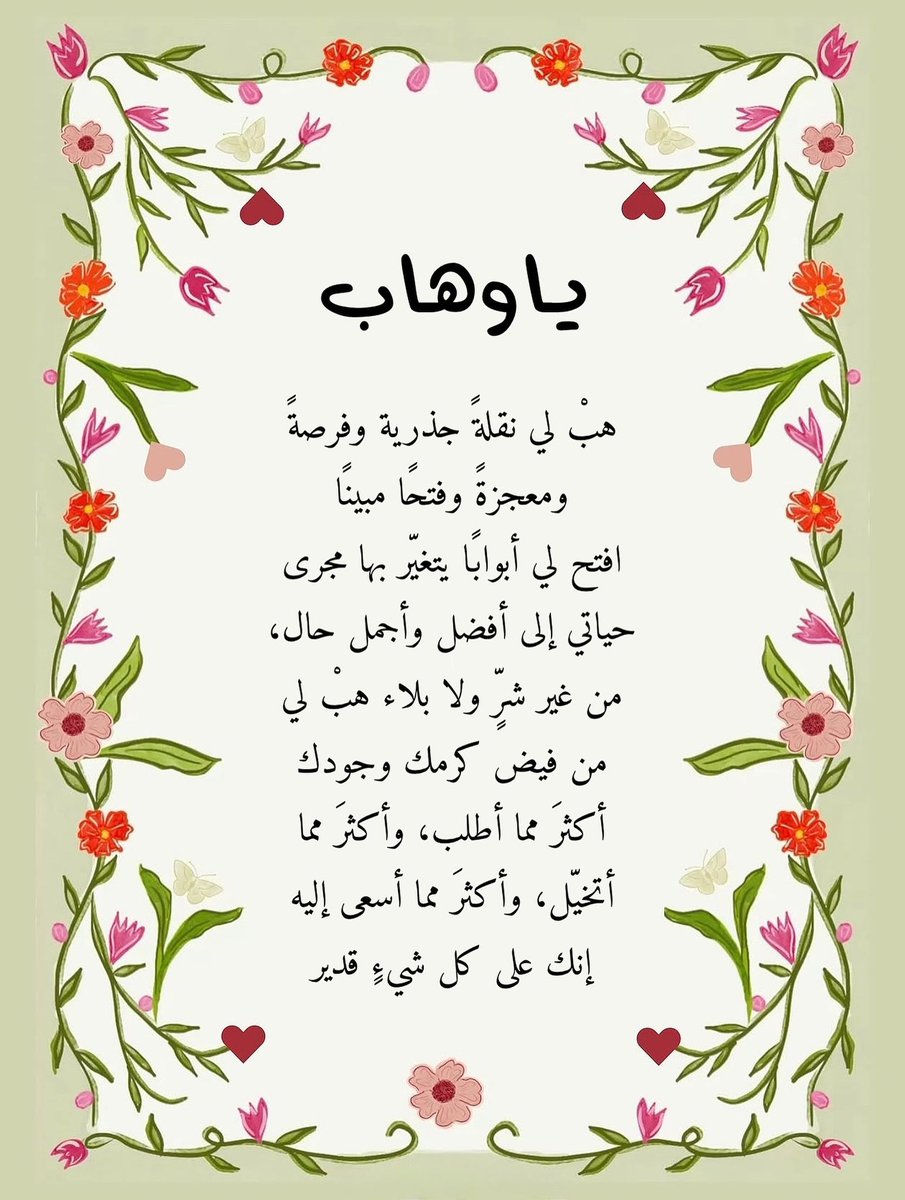 ياوهاب
هبْ لي نقلةً جذرية وفرصةً
ومعجزةً وفتحًا مبينًا
افتح لي أبوابًا يتغيّر بها مجرى
حياتي إلى أفضل وأجمل حال،
من غير شرٍّ ولا بلاء هبْ لي
من فيض كرمك وجودك
أكثرَ مما أطلب، وأكثرَ مما
أتخيّل، وأكثرَ مما أسعى إليه
إنك على كل شيءٍ قدير